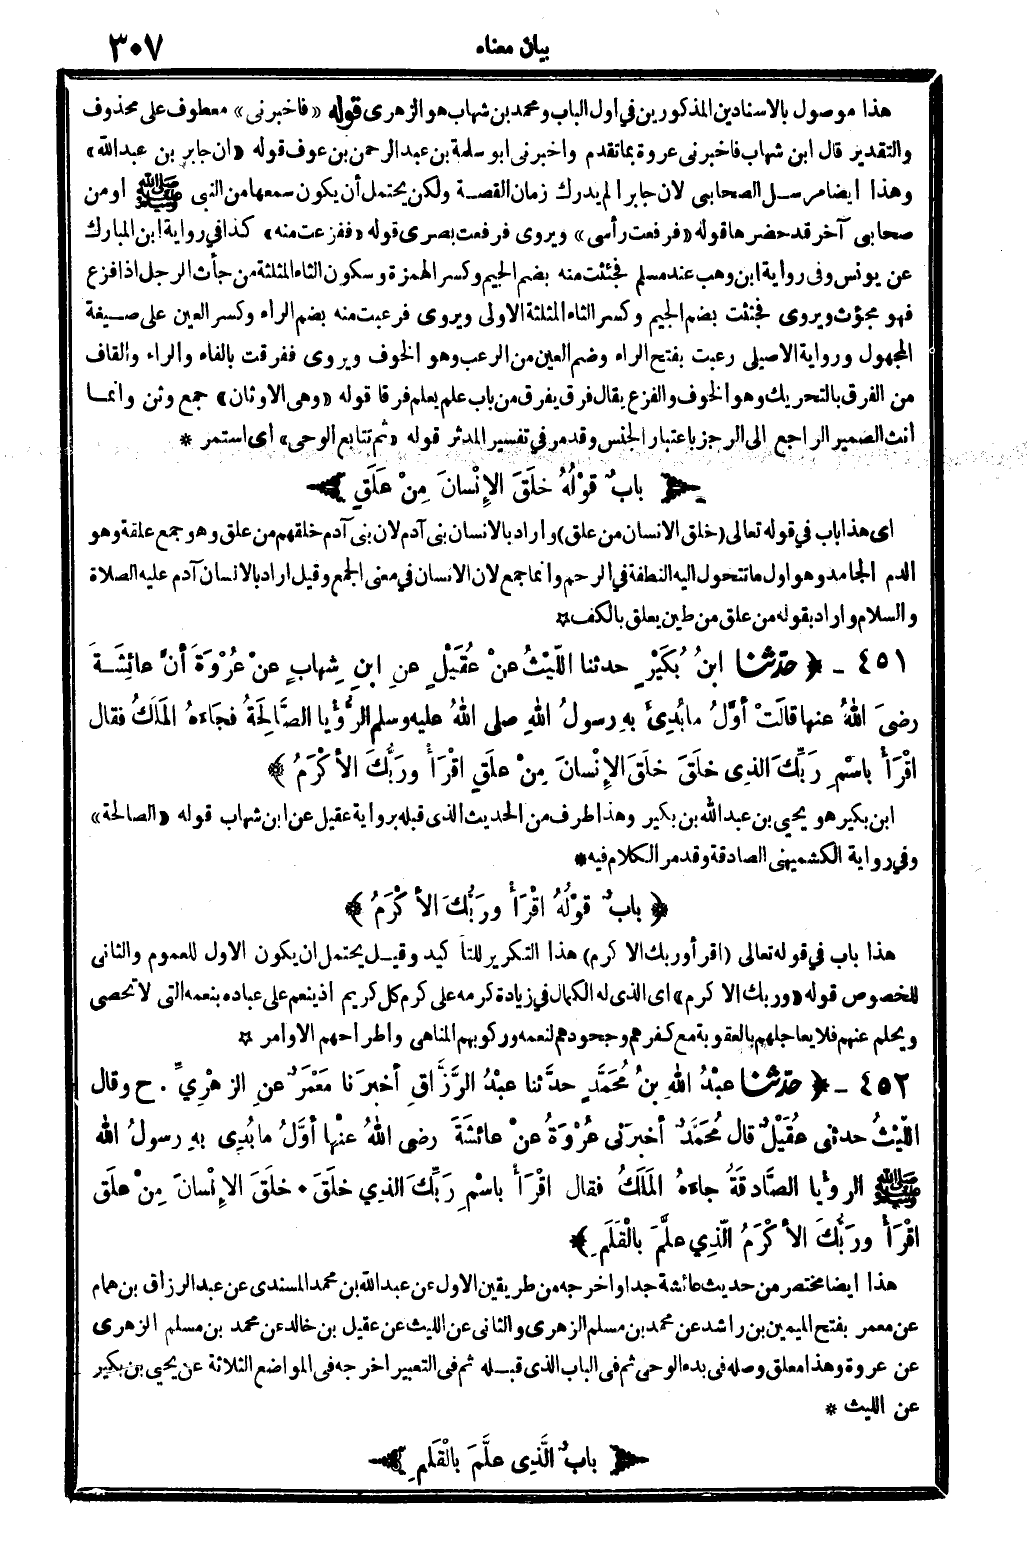 بيان معناه ٣٠٧
هذا موصول بالاسنادين المذكورين في اول الباب ومحمد بن شهاب هو الزهرى قوله «فاخبرنى» معطوف على محذوف
والتقدير قال ابن شهاب فاخبرنى عروة بما تقدم واخبرنى ابو سلمة بن عبد الرحمن بن عوف قوله «ان جابر بن عبد الله»
وهذا ايضا مرسل الصحابى لان جابرا لم يدرك زمان القصة ولكن يحتمل أن يكون سمعها من النبى ﷺ او من
صحابى آخر قد حضرها قوله «فرفعت رأسى» ويروى فرفعت بصرى قوله «ففزعت منه» كذا في رواية ابن المبارك
عن يونس وفى رواية ابن وهب عند مسلم فجئثت منه بضم الجيم وكسر الهمزة وسكون الثاء المثلثة من جأث الرجل اذا فزع
فهو مجؤث ويروى فجثثت بضم الجيم وكسر الثاء المثلثة الاولى ويروى فرعبت منه بضم الراء وكسر العين على صيغة
المجهول ورواية الاصيلى رعبت بفتح الراء وضم العين من الرعب وهو الخوف ويروى ففرقت بالفاء والراء والقاف
من الفرق بالتحريك وهو الخوف والفزع يقال فرق يفرق من باب علم يعلم فرقا قوله «وهى الاوثان» جمع وثن وانما
أنث الضمير الراجع الى الرجز باعتبار الجنس وقد مر في تفسير المدثر قوله «ثم تتابع الوحى» أى استمر *
باب قَوْلُهُ خَلَقَ الإِنْسانَ مِنْ عَلَقٍ
اى هذا باب في قوله تعالى (خلق الانسان من علق) وأراد بالانسان بنى آدم لان بنى آدم خلقهم من علق وهو جمع علقة وهو
الدم الجامد وهو اول ما تتحول اليه النطفة في الرحم وانما جمع لان الانسان في معنى الجمع وقيل اراد بالانسان آدم عليه الصلاة
والسلام واراد بقوله من علق من طين يعلق بالكف
٤٥١ - ﴿ حدثنا ابنُ بُكَيْرٍ حدثنا اللَّيْثُ عنْ عُقَيْلٍ عنِ ابنِ شِهابٍ عنْ عُرْوَةَ أنَّ عائِشَةَ
رضىَ اللهُ عنها قالَتْ أوَّلُ ما بُدِئَ بهِ رسولُ اللهِ صلى اللهُ عليه وسلم الرُّؤْيا الصَّالِحَةُ فجاءَهُ المَلَكُ فقال
اقْرَأْ باسْمِ رَبِّكَ الذِى خَلَقَ خَلَقَ الإِنْسانَ مِنْ علَقٍ اقْرَأْ ورَبُّكَ الأكْرَمُ ﴾
ابن بكير هو يحيى بن عبد الله بن بكير وهذا طرف من الحديث الذى قبله برواية عقيل عن ابن شهاب قوله «الصالحة»
وفي رواية الكشميهنى الصادقة وقد مر الكلام فيه *
﴿ باب قَوْلُهُ اقْرَأْ ورَبُّكَ الأكْرَمُ ﴾
هذا باب في قوله تعالى (اقرأ وربك الاكرم) هذا التكرير للتأكيد وقيل يحتمل ان يكون الاول للعموم والثانى
للخصوص قوله «وربك الاكرم» اى الذى له الكمال في زيادة كرمه على كرم كل كريم اذ ينعم على عباده بنعمه التى لا تحصى
ويحلم عنهم فلا يعاجلهم بالعقوبة مع كفرهم وجحودهم لنعمه وركوبهم المناهى واطراحهم الاوامر
٤٥٢ - ﴿ حدثنا عبْدُ اللهِ بنُ مُحَمَّدٍ حدَّثنا عبْدُ الرَّزَّاقِ أخبرَنا مَعْمَرٌ عنِ الزُهْرِيِّ . ح وقال
اللَّيْثُ حدثنى عُقَيْلٌ قال مُحَمَّدٌ أخبرَنى عُرْوَةُ عنْ عائشَةَ رضى اللهُ عنْها أوَّلُ ما بُدِى بهِ رسولُ الله
ﷺ الرؤيا الصَّادِقَةُ جاءَهُ المَلَكُ فقال اقْرَأْ باسْمِ رَبِّكَ الذِي خلَقَ • خلَقَ الإنْسانَ مِنْ علَقَ
اقْرَأْ ورَبُّكَ الأكْرَمُ الَّذِي علَّمَ بالْقَلَمِ ﴾
هذا ايضا مختصر من حديث عائشة جدا واخرجه من طريقين الاول عن عبد الله بن محمد المسندى عن عبد الرزاق بن همام
عن معمر بفتح الميمين بن راشد عن محمد بن مسلم الزهرى والثانى عن الليث عن عقيل بن خالد عن محمد بن مسلم الزهرى
عن عروة وهذا معلق وصله فى بدء الوحى ثم فى الباب الذى قبله ثم فى التعبير اخرجه فى المواضع الثلاثة عن يحيى بن بكير
عن الليث *
باب الَّذِى علَّمَ بالْقَلَمِ